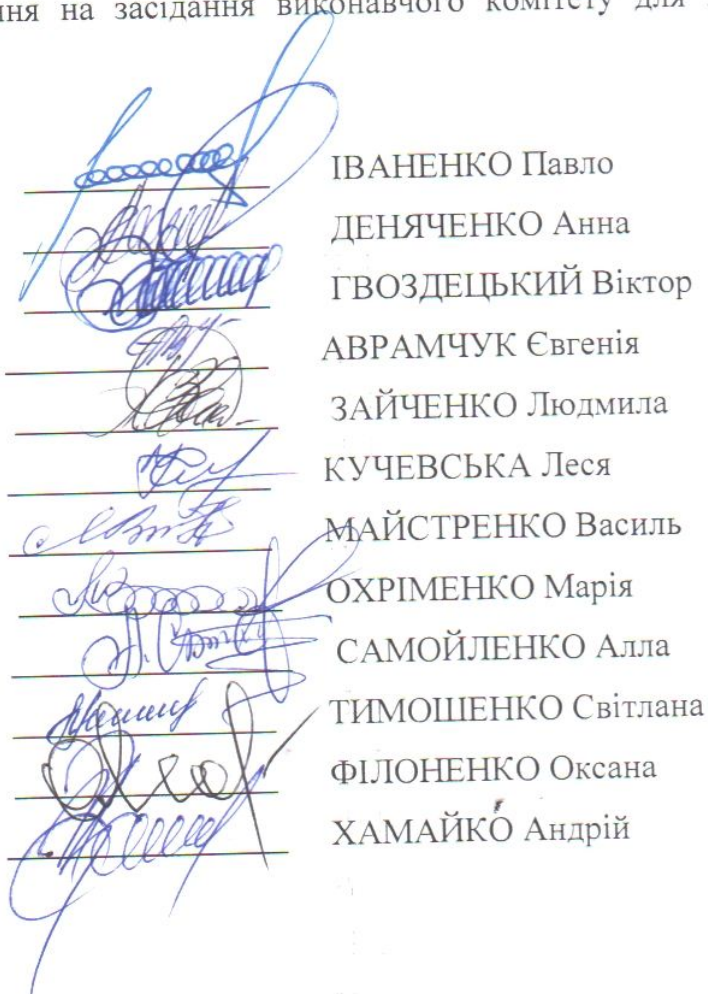 ня на засідання виконавчого комітету для
ІВАНЕНКО Павло
ДЕНЯЧЕНКО Анна
ГВОЗДЕЦЬКИЙ Віктор
АВРАМЧУК Євгенія
ЗАЙЧЕНКО Людмила
КУЧЕВСЬКА Леся
МАЙСТРЕНКО Василь
ОХРІМЕНКО Марія
САМОЙЛЕНКО Алла
ТИМОШЕНКО Світлана
ФІЛОНЕНКО Оксана
ХАМАЙКО Андрій